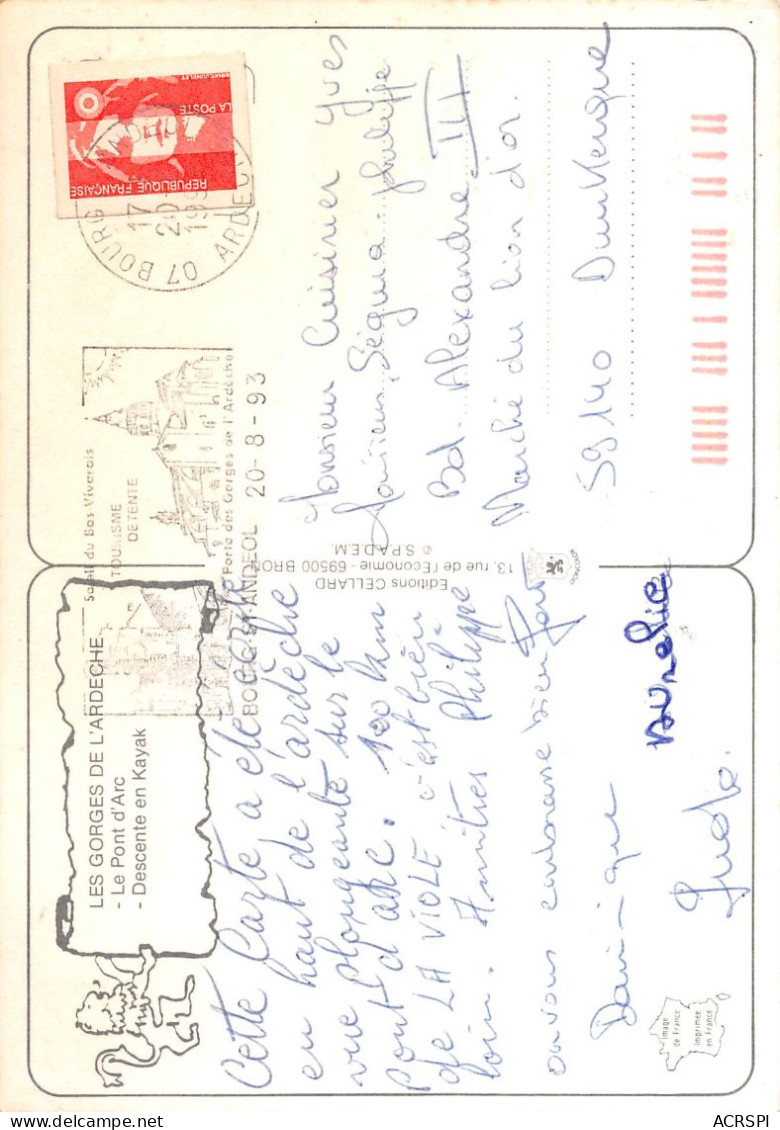 LES GORGES DE L'ARDECHE
- Le Pont d'Arc
- Descente en Kayak
Cette Carte a été écrite
en haut de l'ardèche
vue plongeante sur le
Pont d'arc. 100 km
de LA VIOLE c'est bien
loin. Amitiés Philippe
on vous embrasse bien fort
Dominique
Aurélie
Ludo.
Image
de France
Imprimée
en France
Editions CELLARD
13, rue de l'Economie - 69500 BRON
© S.P.A.D.E.M.
Soleil du Bas-Vivarais
TOURISME
DETENTE
Porte des Gorges de l'Ardèche
BOURG ST ANDEOL 20-8-93
07 BOURG ST ANDEOL
ARDECHE
17 H
20-8
199
REPUBLIQUE FRANÇAISE
LA POSTE
BRIAT-JUMELET
Monsieur Cuisinier Yves
Monsieur Ségura philippe
Bd. Alexandre III
Marché du lion d'or.
59140 Dunkerque
ACRSPI